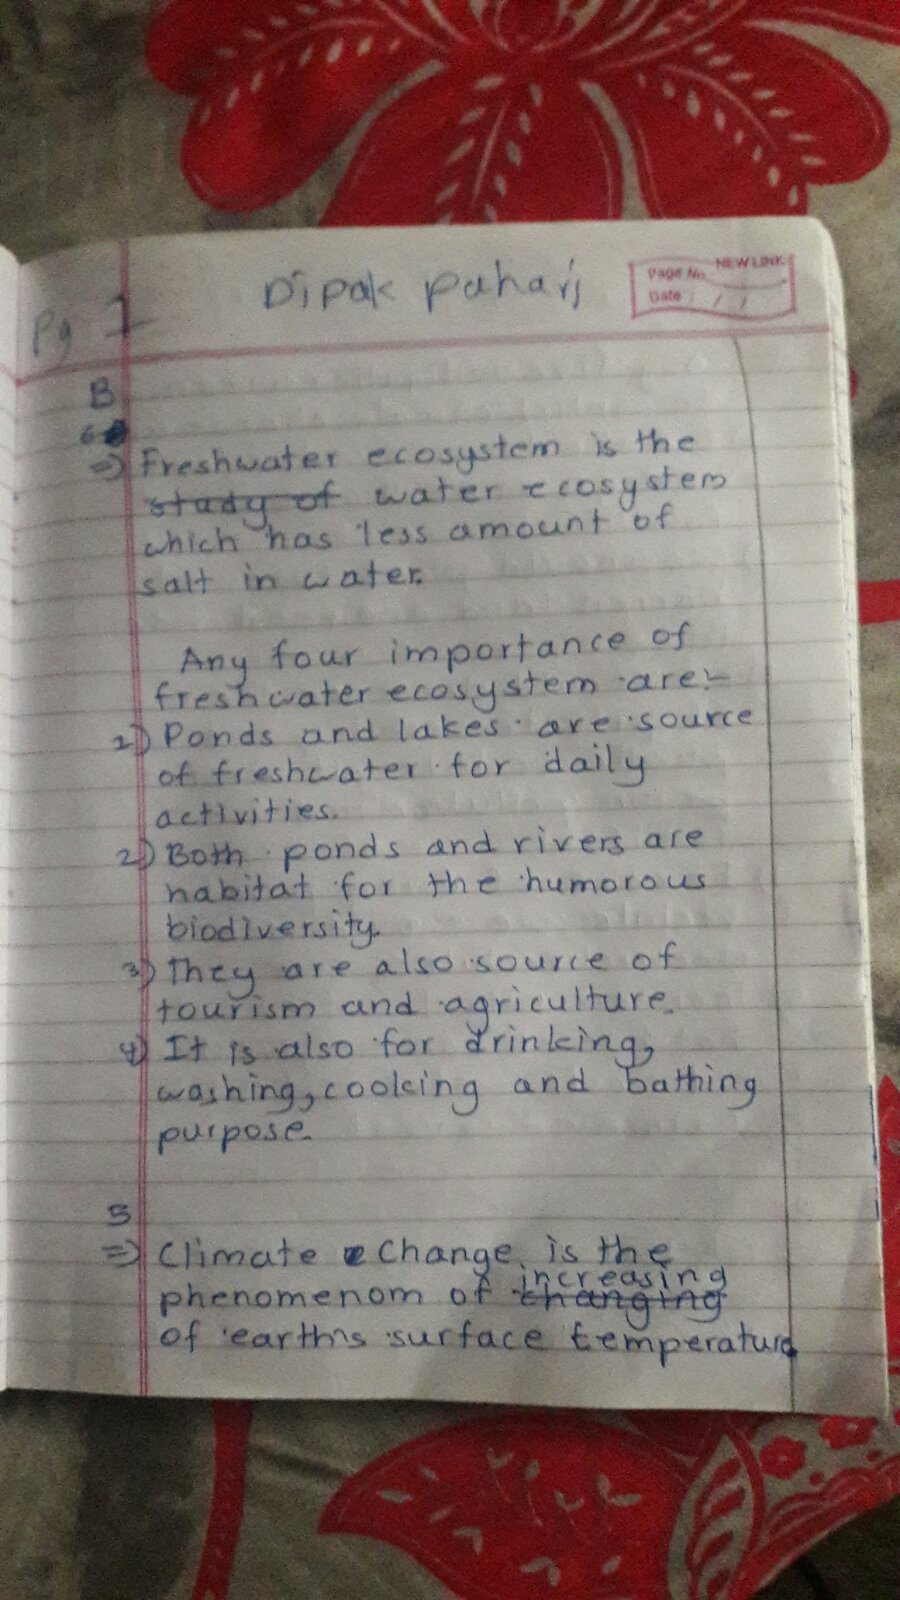 Dipak pahari
NEW LINK
Page No.
Date : / /
Pg 1
B
6
=) Freshwater ecosystem is the
study of water ecosystem
which has less amount of
salt in water.
Any four importance of
freshwater ecosystem are:-
1) Ponds and lakes are source
of freshwater for daily
activities.
2) Both ponds and rivers are
habitat for the humorous
biodiversity.
3) They are also source of
tourism and agriculture.
4) It is also for drinking,
washing, cooking and bathing
purpose.
5
=) Climate Change is the
phenomenom of changing increasing
of earth's surface temperature